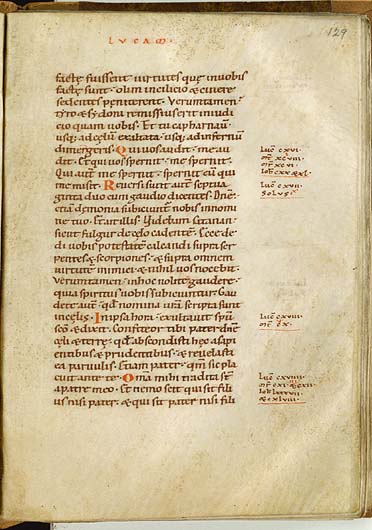 LUCAM
129
factę fuissent uirtutes quę inuobis
factę sunt · olim incilicio & cinere
sedentes peniterent · Verumtamen
tyro & sydoni remissius erit iniudi
cio quam uobis · Et tu capharnau
usq; adcęlum exaltata · usq; adinfernū
dimergeris · Qui uos audit · me au
dit · Et qui uos spernit · me spernit ·
Qui autē me spernit · spernit eū qui
me misit · Reuersi sunt autē septua
ginta duo cum gaudio dicentes · Dnē
etiā demonia subiciunt nobis innomi
ne tuo · Et ait illis · Videbam satanan
sicut fulgur decęlo cadentem · Ecce de
di uobis potestatē calcandi supra ser
pentes & scorpiones · & supra omnem
uirtutē inimici · & nihil uos nocebit ·
Verumtamen · inhoc nolite gaudere ·
quia spiritus uobis subiciuntur · Gau
dete autē · qđ nomina urā scripta sunt
incęlis · Inipsa hora · exultauit spū
scō & dixit · Confiteor tibi pater dnē
cęli & terrę · qđ abscondisti hęc asapi
entibus & prudentibus · & reuelasti
ea paruulis · Etiam pater · qm̄ sic pla
cuit ante te · Omā mihi tradita st̄
apatre meo · Et nemo scit qui sit fili
us nisi pater · & qui sit pater nisi fili
Luc̄ cxvi ·
mt̄ xcviii ·
mr̄ xcvi ·
Ioh̄ cxx
Luc̄ cxvii ·
solus ·
Luc̄ cxviii ·
mt̄ cx ·
Luc̄ cxviiii ·
mt̄ cxi & cxii ·